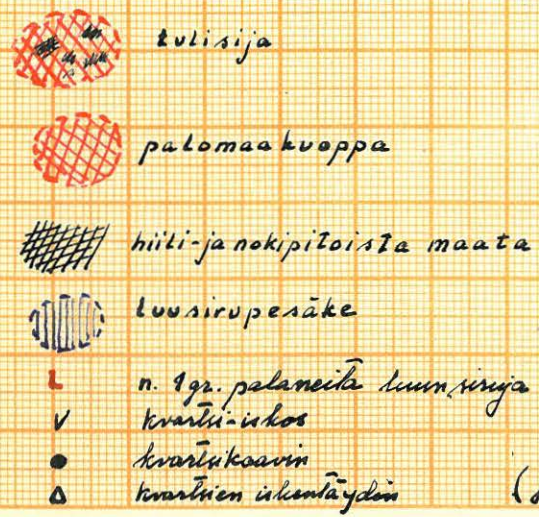 tulisija
palomaakuoppa
hiili-ja nokipitoista maata
luusirupesäke
L n. 1gr. palaneita luun siruja
V kvartsi-iskos
kvartsikaavin
kvartsien iskentäydin (